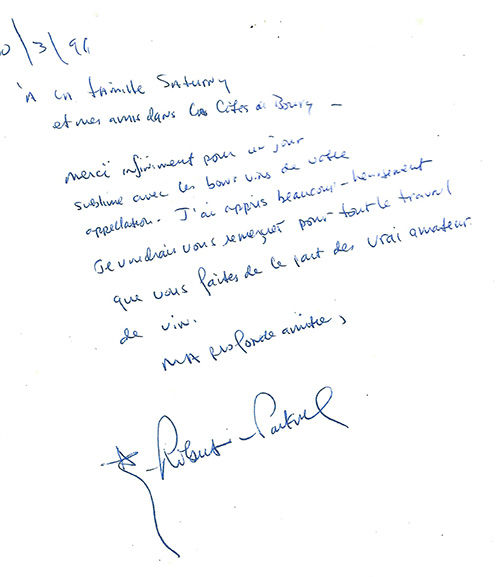 0/3/96
A LA famille Saturny
et mes amis dans les Côtes de Bourg –
Merci infiniment pour un jour
sublime avec les bons vins de votre
appellation. J'ai appris beaucoup – heureusement
Je voudrais vous remercier pour tout le travail
que vous faites de la part des vrai amateur
de vin.
MA profonde amitié,
Robert Parker